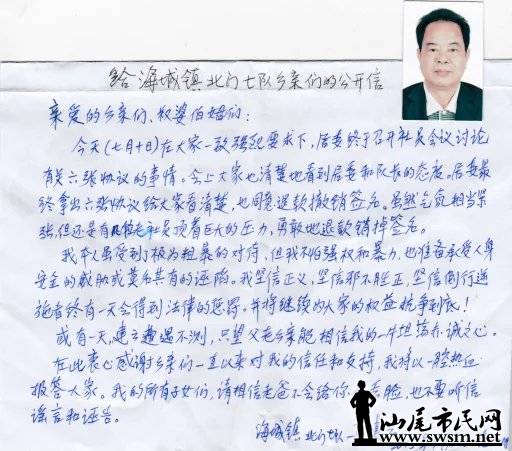 给海城镇北门七队乡亲们的公开信
亲爱的乡亲们、叔婆伯姆们:
今天(七月十日)在大家一致强烈要求下,居委终于召开社员会议讨论
有关六张协议的事情。会上大家也清楚地看到居委和队长的态度。居委最
终拿出六张协议给大家看清楚,也同意退款撤销签名。虽然气氛相当紧
张,但还是有社员顶着巨大的压力,勇敢地退款销掉签名。
我本人虽受到极为粗暴的对待,但我不怕强权和暴力,也准备承受人身
安全的威胁或莫名其有的诬陷。我坚信正义,坚信邪不胜正,坚信倒行逆
施者终有一天会得到法律的惩罚。并将继续为大家的权益抗争到底!
或有一天,建立遭遇不测,只望父老乡亲能相信我的一片坦荡赤诚之心。
在此衷心感谢乡亲们一直以来对我的信任和支持,我将以一腔热血
报答大家。我的所有子女们,请相信老爸不会给你丢脸,也不要听信
谣言和诬告。
海城镇北门七队
汕尾市民网
www.swsm.net